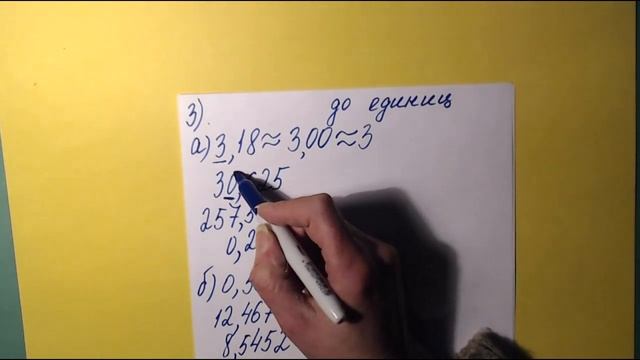 3). до единиц
а) 3,18≈3,00≈3
30,625
257,5
0,2
б) 0,5
12,467
8,5452